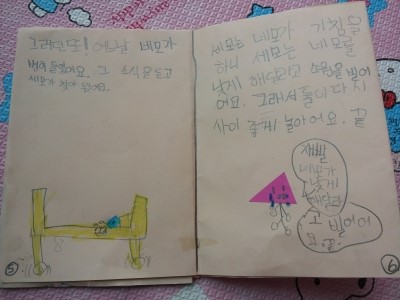 그러던 또! 어느날 네모가
병이 들었어요. 그 소식을 듣고
세모가 찾아 왔어요.
5
세모는 네모가 기침을
하니 세모는 네모를
낫게 해달라고 소원을 빌어
어요. 그래서 둘이 다시
사이 좋게 놀아어요. 끝
제발
네모가
낳게
해달라
고 빌어어
요. 끝.
6